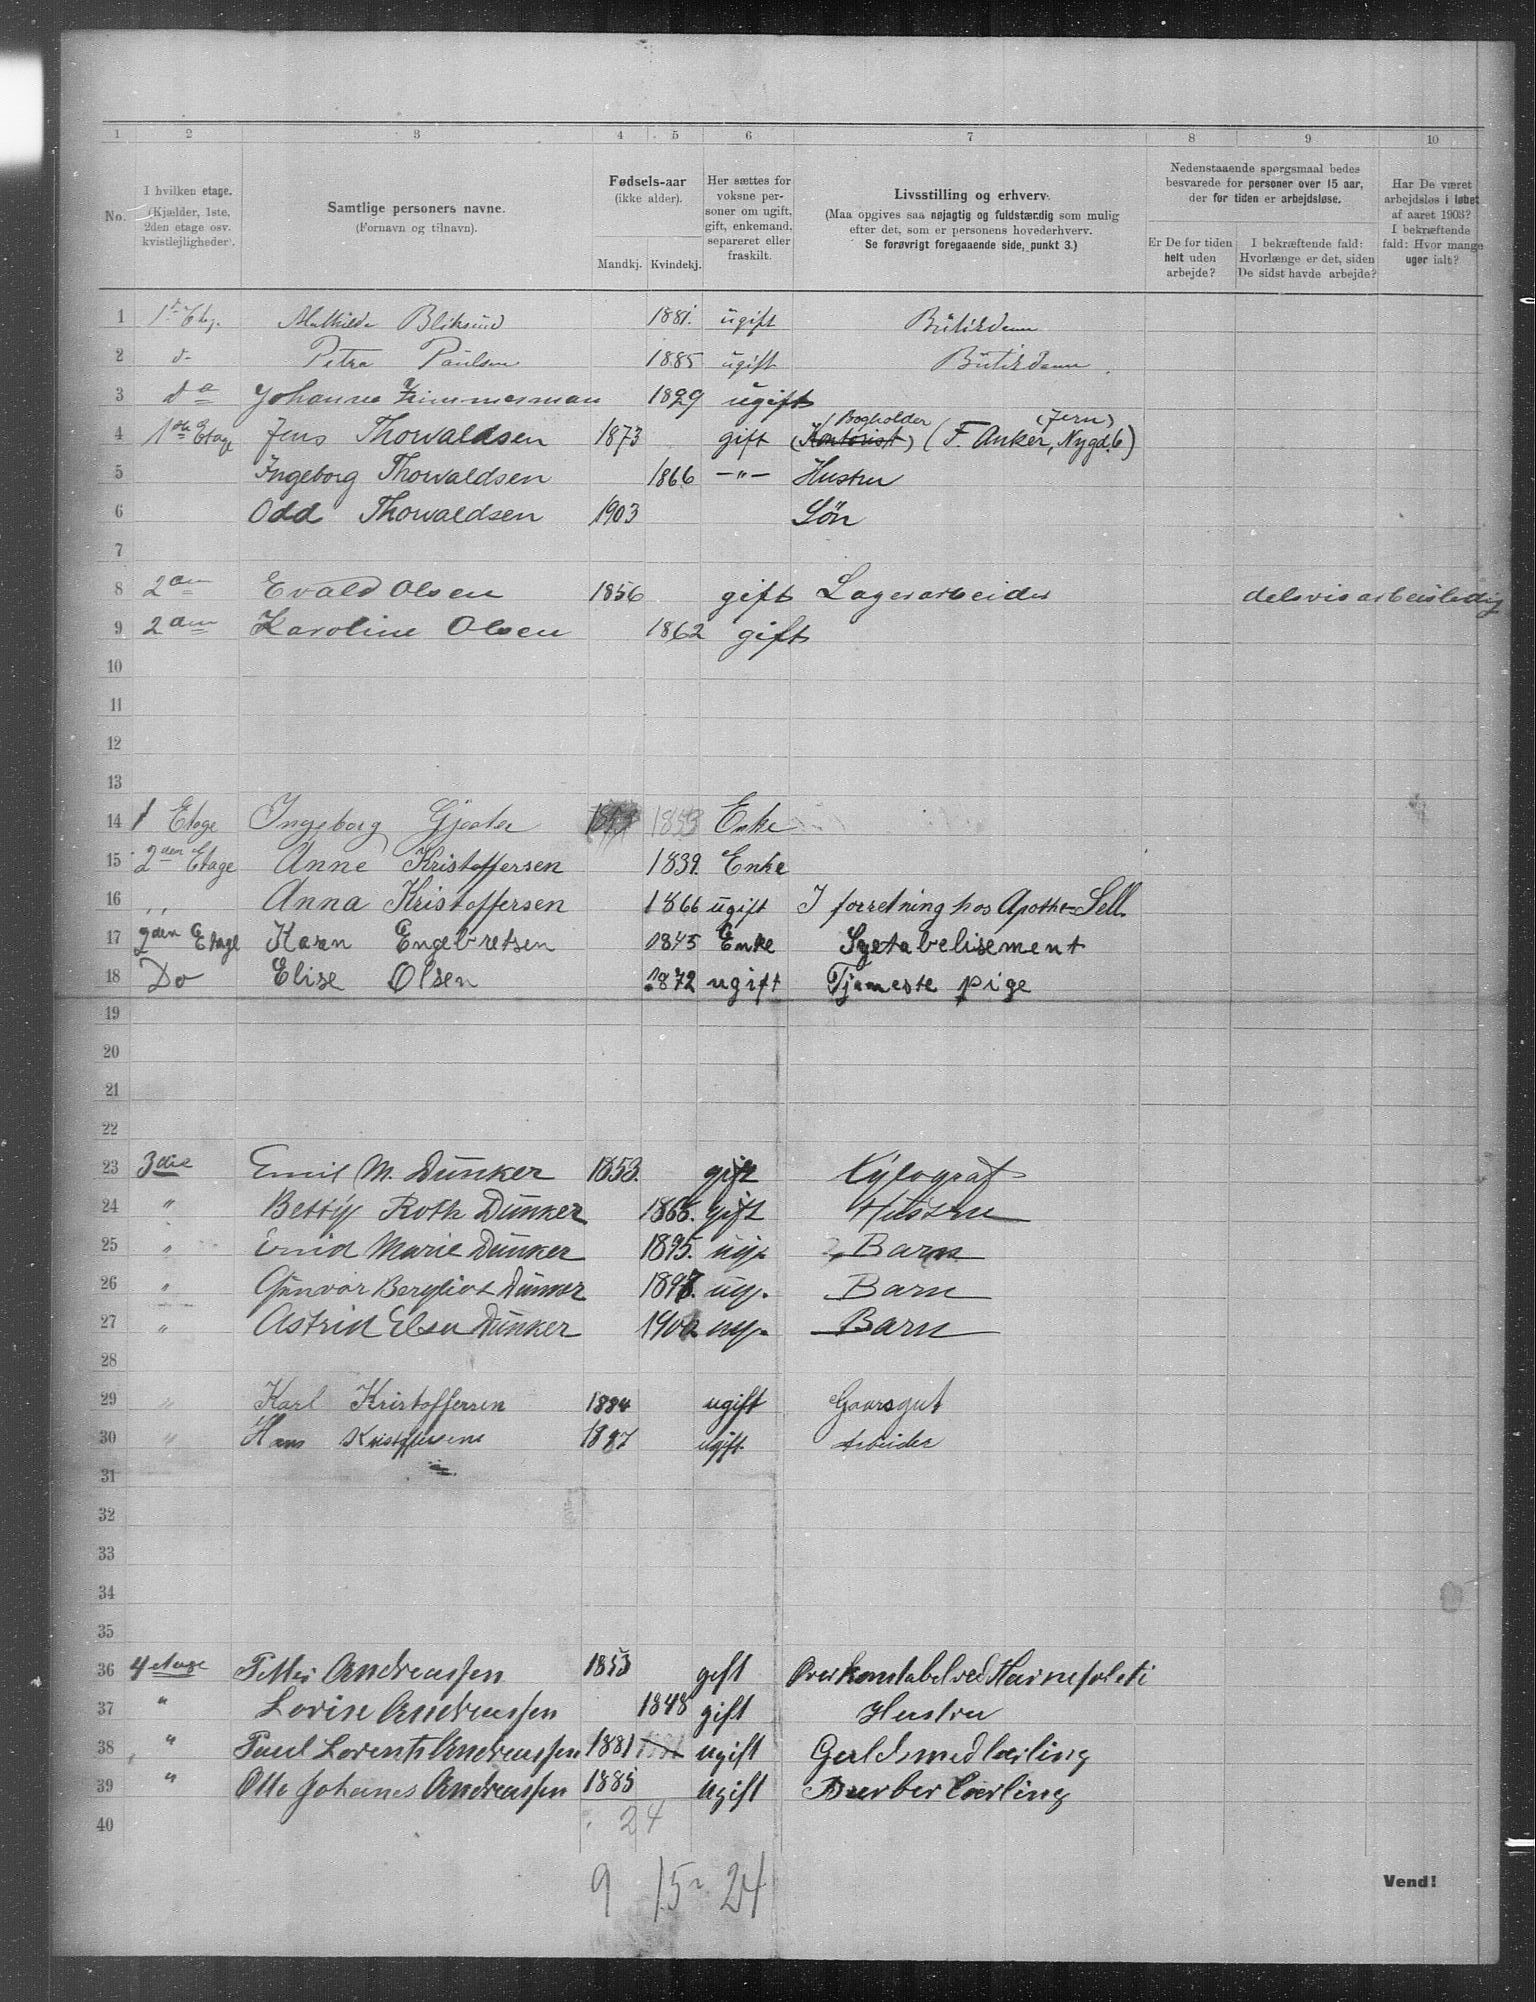 1 2 3 4 5 6 7 8 9 10
No.
I hvilken etage.
(Kjælder, 1ste,
2den etage osv.
kvistlejligheder).
Samtlige personers navne.
(Fornavn og tilnavn).
Fødsels-aar
(ikke alder).
Mandkj. Kvindekj.
Her sættes for
voksne per-
soner om ugift,
gift, enkemand,
separeret eller
fraskilt.
Livsstilling og erhverv.
(Maa opgives saa nøjagtig og fuldstærdig som mulig
efter det, som er personens hovederhverv.
Se forøvrigt foregaaende side, punkt 3.)
Nedenstaaende spørgsmaal bedes
besvarede for personer over 15 aar,
der for tiden er arbejdsløse.
Er De for tiden
helt uden
arbejde?
I bekræftende fald:
Hvorlænge er det, siden
De sidst havde arbejde?
Har De været
arbejdsløs i løbet
af aaret 1903?
I bekræftende
fald: Hvor mange
uger ialt?
1 1st Etg. Mathilde Bliksund 1881. ugift Butikdam
2 d- Petra Paulsen 1885 ugift Butikdam
3 do Johanne Zimmerman 1829 ugift
4 1ste Etage Jens Thorvaldsen 1873 gift (Kontorist) Bogholder (F. Anker, Nygd. 6) (Jern)
5 Ingeborg Thorvaldsen 1866 -"- Hustru
6 Odd Thorvaldsen 1903 Søn
7
8 2den Evald Olsen 1856 gift Lagerarbeider delsvis arbeisledig
9 2den Karoline Olsen 1862 gift
10
11
12
13
14 1 Etage Ingeborg 1853 Enke
15 2den Etage Anne Kristoffersen 1839. Enke
16 ,, Anna Kristoffersen 1866 ugift I forretning hos Apothe= Sell.
17 2den Etage Karn Engebretsen 1845 Enke Syetabelisement
18 Do Elise Olsen 1872 ugift Tjeneste pige
19
20
21
22
23 3die Emil M. Dunker 1853. gift Xylograf
24 " Betty Roth Dunker 1865. gift Hustru
25 " Enid Marie Dunker 1895. ug. Barn
26 " Gunvor Bergliot Dunker 1897. ug. Barn
27 " Astrid Elsa Dunker 1900. ug. Barn
28
29 " Karl Kristoffersen 1884 ugift Gaarsgut
30 " Hans Kristoffersene 1887 ugift Arbeider
31
32
33
34
35
36 4 etage Petter Andreassen 1853 gift Overkonstabel ved Havnepoleti
37 " Lovise Andreassen 1848 gift Hustru
38 " Paul Lorents Andreassen 1881 ugift Guldsmedlærling
39 " Otto Johanes Andreassen 1885 ugift Barber Lærling
40 24
9 15 24
Vend!